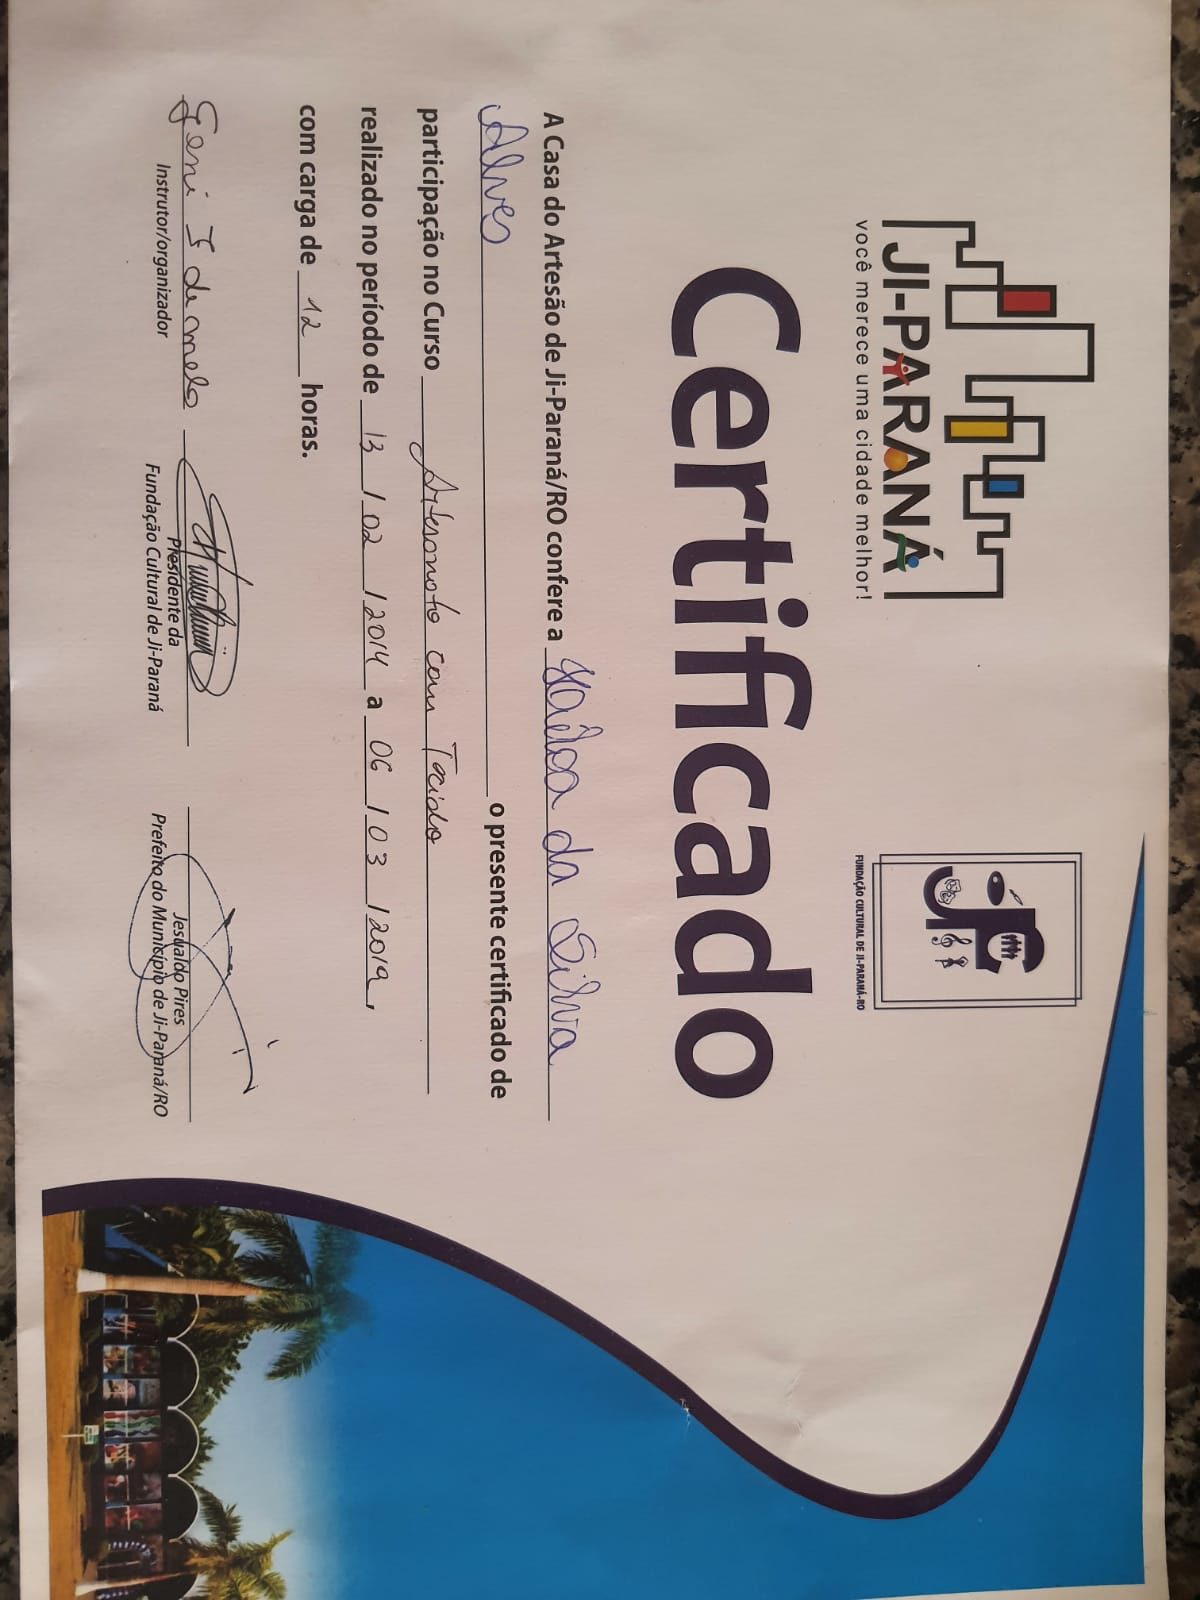 JI-PARANÁ
você merece uma cidade melhor!
FUNDAÇÃO CULTURAL DE JI-PARANÁ-RO
Certificado
A Casa do Artesão de Ji-Paraná/RO confere a da Silva
Alves o presente certificado de
participação no Curso Artesanato com Tecido
realizado no período de 13 / 02 / 2014 a 06 / 03 / 2019,
com carga de 12 horas.
Geni de melo
Instrutor/organizador
Presidente da
Fundação Cultural de Ji-Paraná
Jesualdo Pires
Prefeito do Município de Ji-Paraná/RO